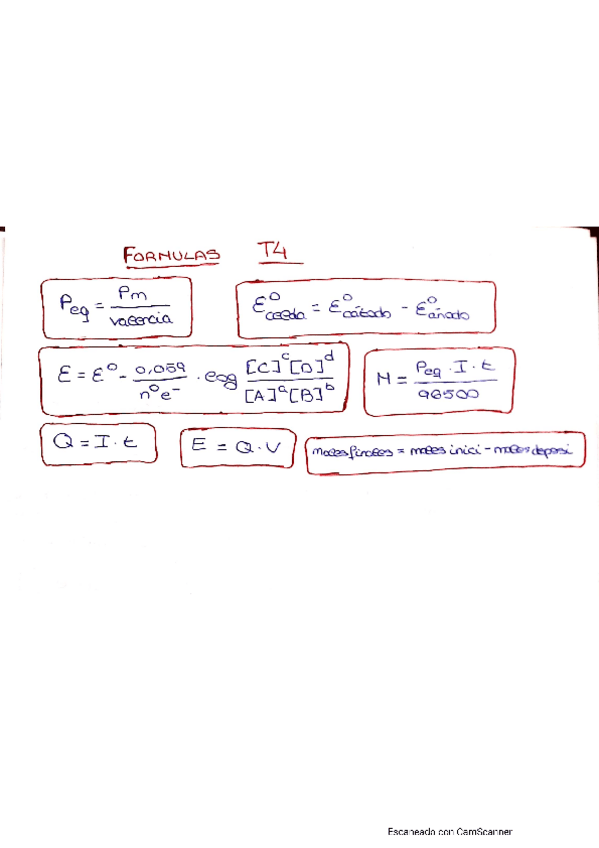 FORMULAS T4
Peq = Pm / valencia
ε⁰celda = ε⁰cátodo - ε⁰ánodo
ε = ε⁰ - 0,059 / nºe⁻ · log [C]ᶜ[D]ᵈ / [A]ᵃ[B]ᵇ
M = Peq · I · t / 96500
Q = I · t
E = Q · V
moles finales = moles inici - moles deposi
Escaneado con CamScanner